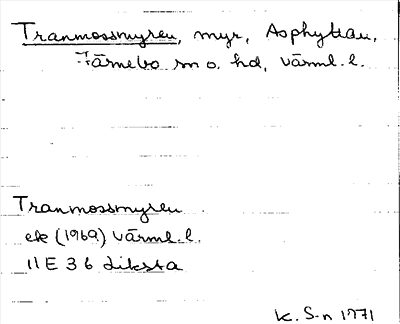 Tranmossmyren, myr, Asphyttan,
Färnebo sn o. hd, Värml. l.
Tranmossmyren
ek (1969) Värml. l.
11 E 3 b
K. S-n 1971